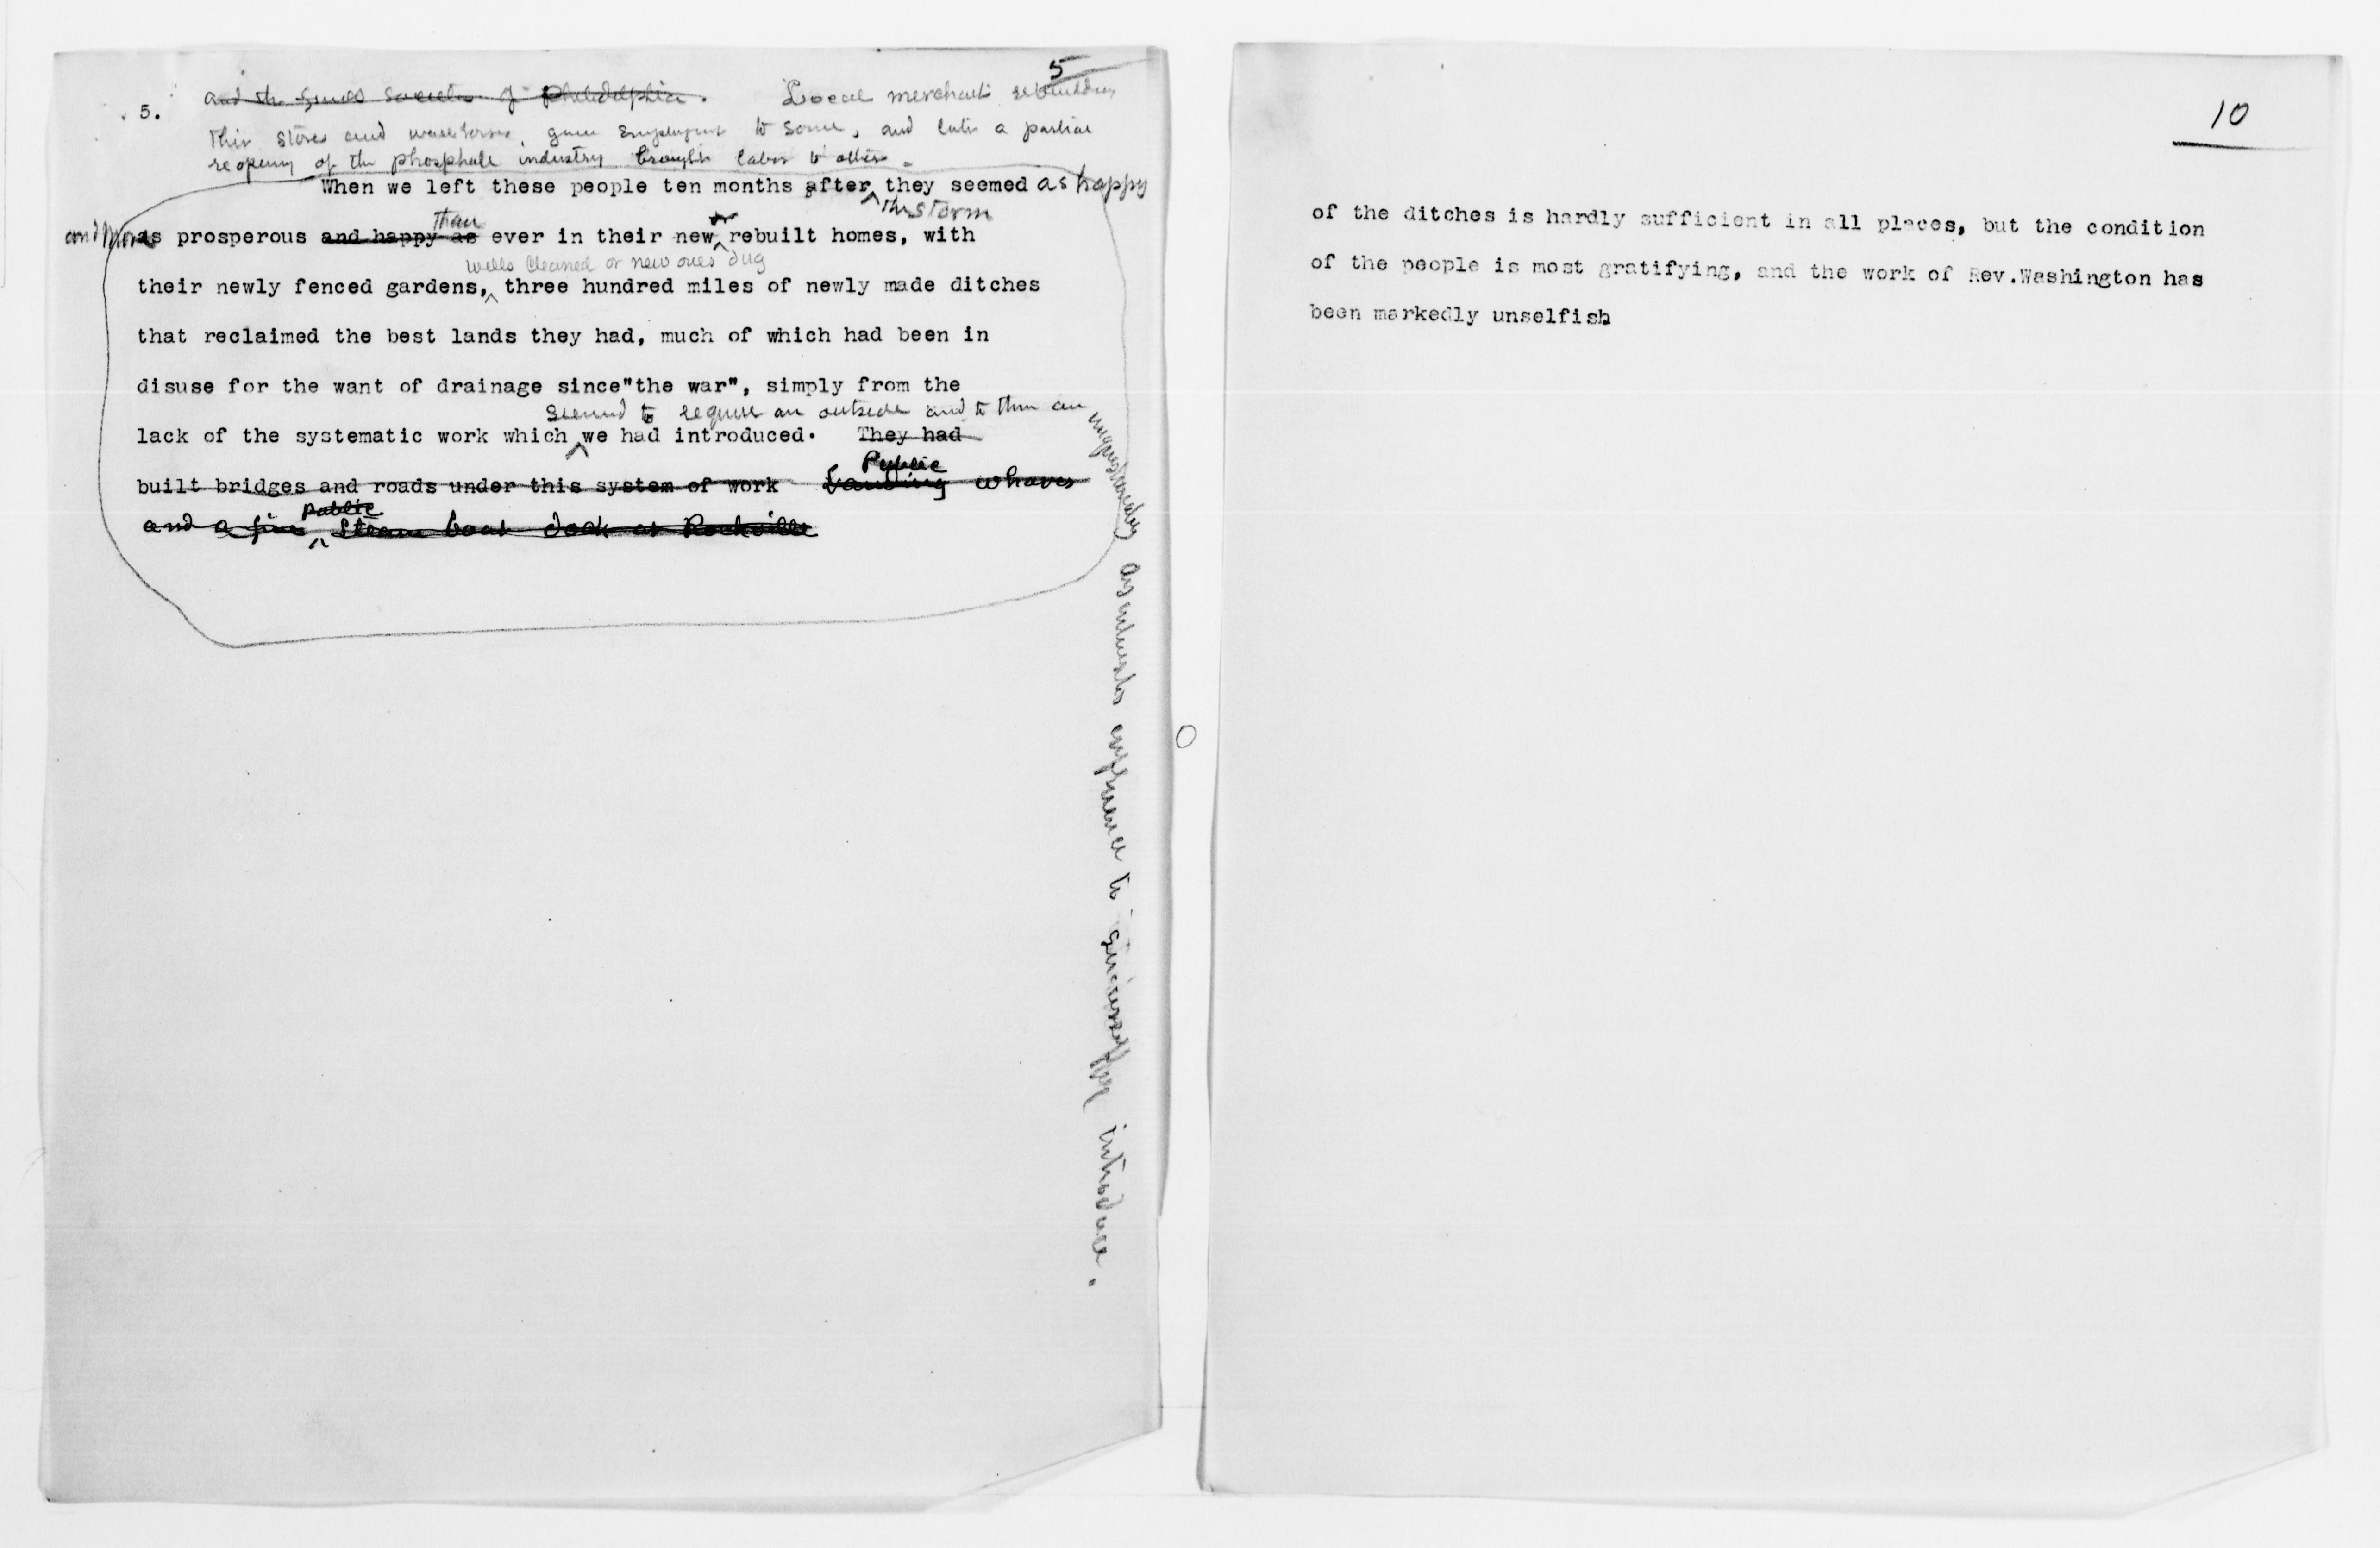 5
5. and the Friends Societies of Philadelphia. Local merchants rebuilding
their stores and warehouses, gave employment to some, and later a partial
reopening of the phosphate industry brought labor to others.
When we left these people ten months after they seemed as happy
the storm
and more
than or
as prosperous and happy as ever in their new rebuilt homes, with
wells cleaned or new ones dug
their newly fenced gardens, three hundred miles of newly made ditches
that reclaimed the best lands they had, much of which had been in
disuse for the want of drainage since"the war", simply from the
seemed to require an outside and to them an
lack of the systematic work which we had introduced. They had
Public
built bridges and roads under this system of work Landing wharves
public
and a fine Steam boat dock at Rockville
to successfully introduce.
10
of the ditches is hardly sufficient in all places, but the condition
of the people is most gratifying, and the work of Rev.Washington has
been markedly unselfish